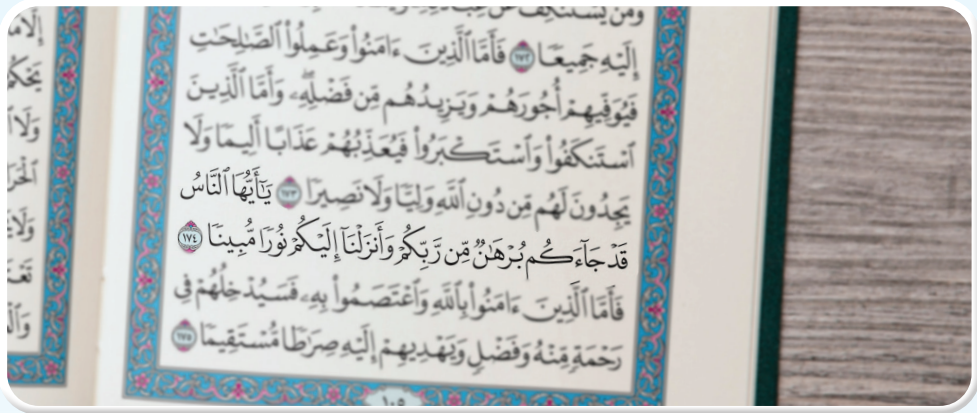 ومن يستنكف عن
إِلَيْهِ جَمِيعًا ١٧٢ فَأَمَّا ٱلَّذِينَ ءَامَنُوا۟ وَعَمِلُوا۟ ٱلصَّٰلِحَٰتِ
فَيُوَفِّيهِمْ أُجُورَهُمْ وَيَزِيدُهُم مِّن فَضْلِهِۦۖ وَأَمَّا ٱلَّذِينَ
ٱسْتَنكَفُوا۟ وَٱسْتَكْبَرُوا۟ فَيُعَذِّبُهُمْ عَذَابًا أَلِيمًا وَلَا
يَجِدُونَ لَهُم مِّن دُونِ ٱللَّهِ وَلِيًّا وَلَا نَصِيرًا ١٧٣ يَٰٓأَيُّهَا ٱلنَّاسُ
قَدْ جَآءَكُم بُرْهَٰنٌ مِّن رَّبِّكُمْ وَأَنزَلْنَآ إِلَيْكُمْ نُورًا مُّبِينًا ١٧٤
فَأَمَّا ٱلَّذِينَ ءَامَنُوا۟ بِٱللَّهِ وَٱعْتَصَمُوا۟ بِهِۦ فَسَيُدْخِلُهُمْ فِى
رَحْمَةٍ مِّنْهُ وَفَضْلٍ وَيَهْدِيهِمْ إِلَيْهِ صِرَٰطًا مُّسْتَقِيمًا ١٧٥
١٠٥